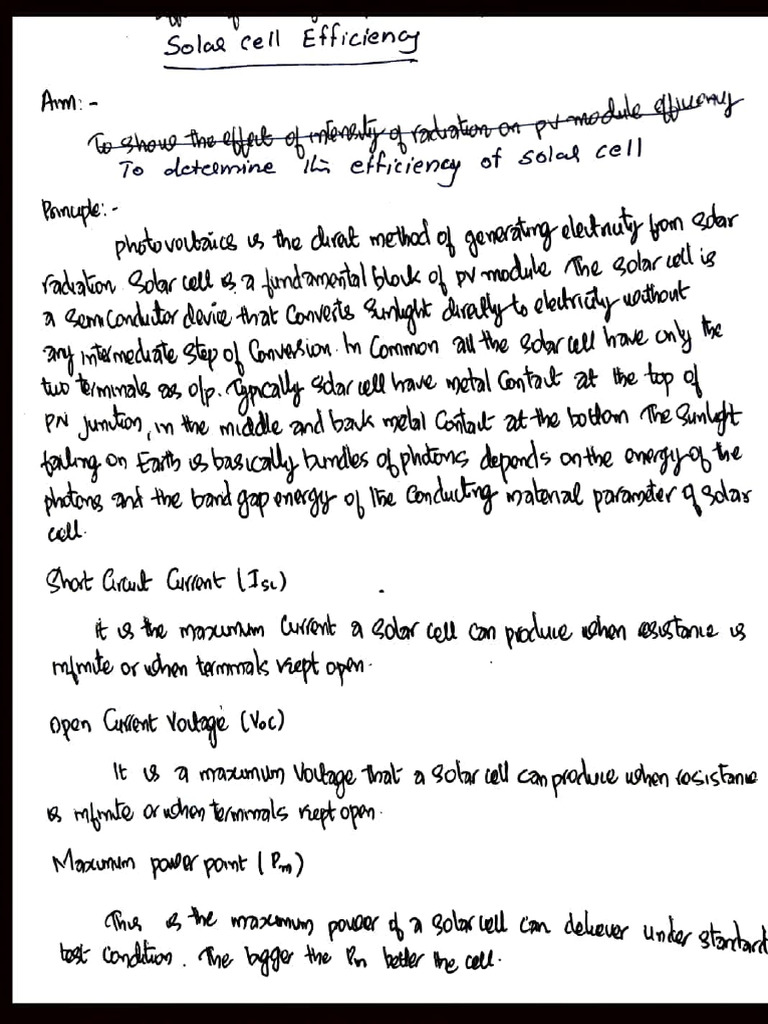 Solar cell Efficiency
Aim:-
To show the effect of intensity of radiation on pv module efficiency
To determine the efficiency of solar cell
Principle:-
photovoltaics is the direct method of generating electricity from solar
radiation. Solar cell is a fundamental block of pv module The solar cell is
a semiconductor device that converts sunlight directly to electricity without
any intermediate step of conversion. In common all the solar cell have only the
two terminals as o/p. Typically solar cell have metal contact at the top of
PN junction, in the middle and back metal contact at the bottom The sunlight
falling on Earth is basically bundles of photons depends on the energy of the
photons and the band gap energy of the conducting material parameter of solar
cell.
Short Circuit Current (Isc)
it is the maximum current a solar cell can produce when resistance is
infinite or when terminals kept open.
Open Current Voltage (Voc)
It is a maximum voltage that a solar cell can produce when resistance
is infinite or when terminals kept open.
Maximum power point (Pm)
This is the maximum power of a solar cell can deliever under standard
test condition. The bigger the Pm better the cell.